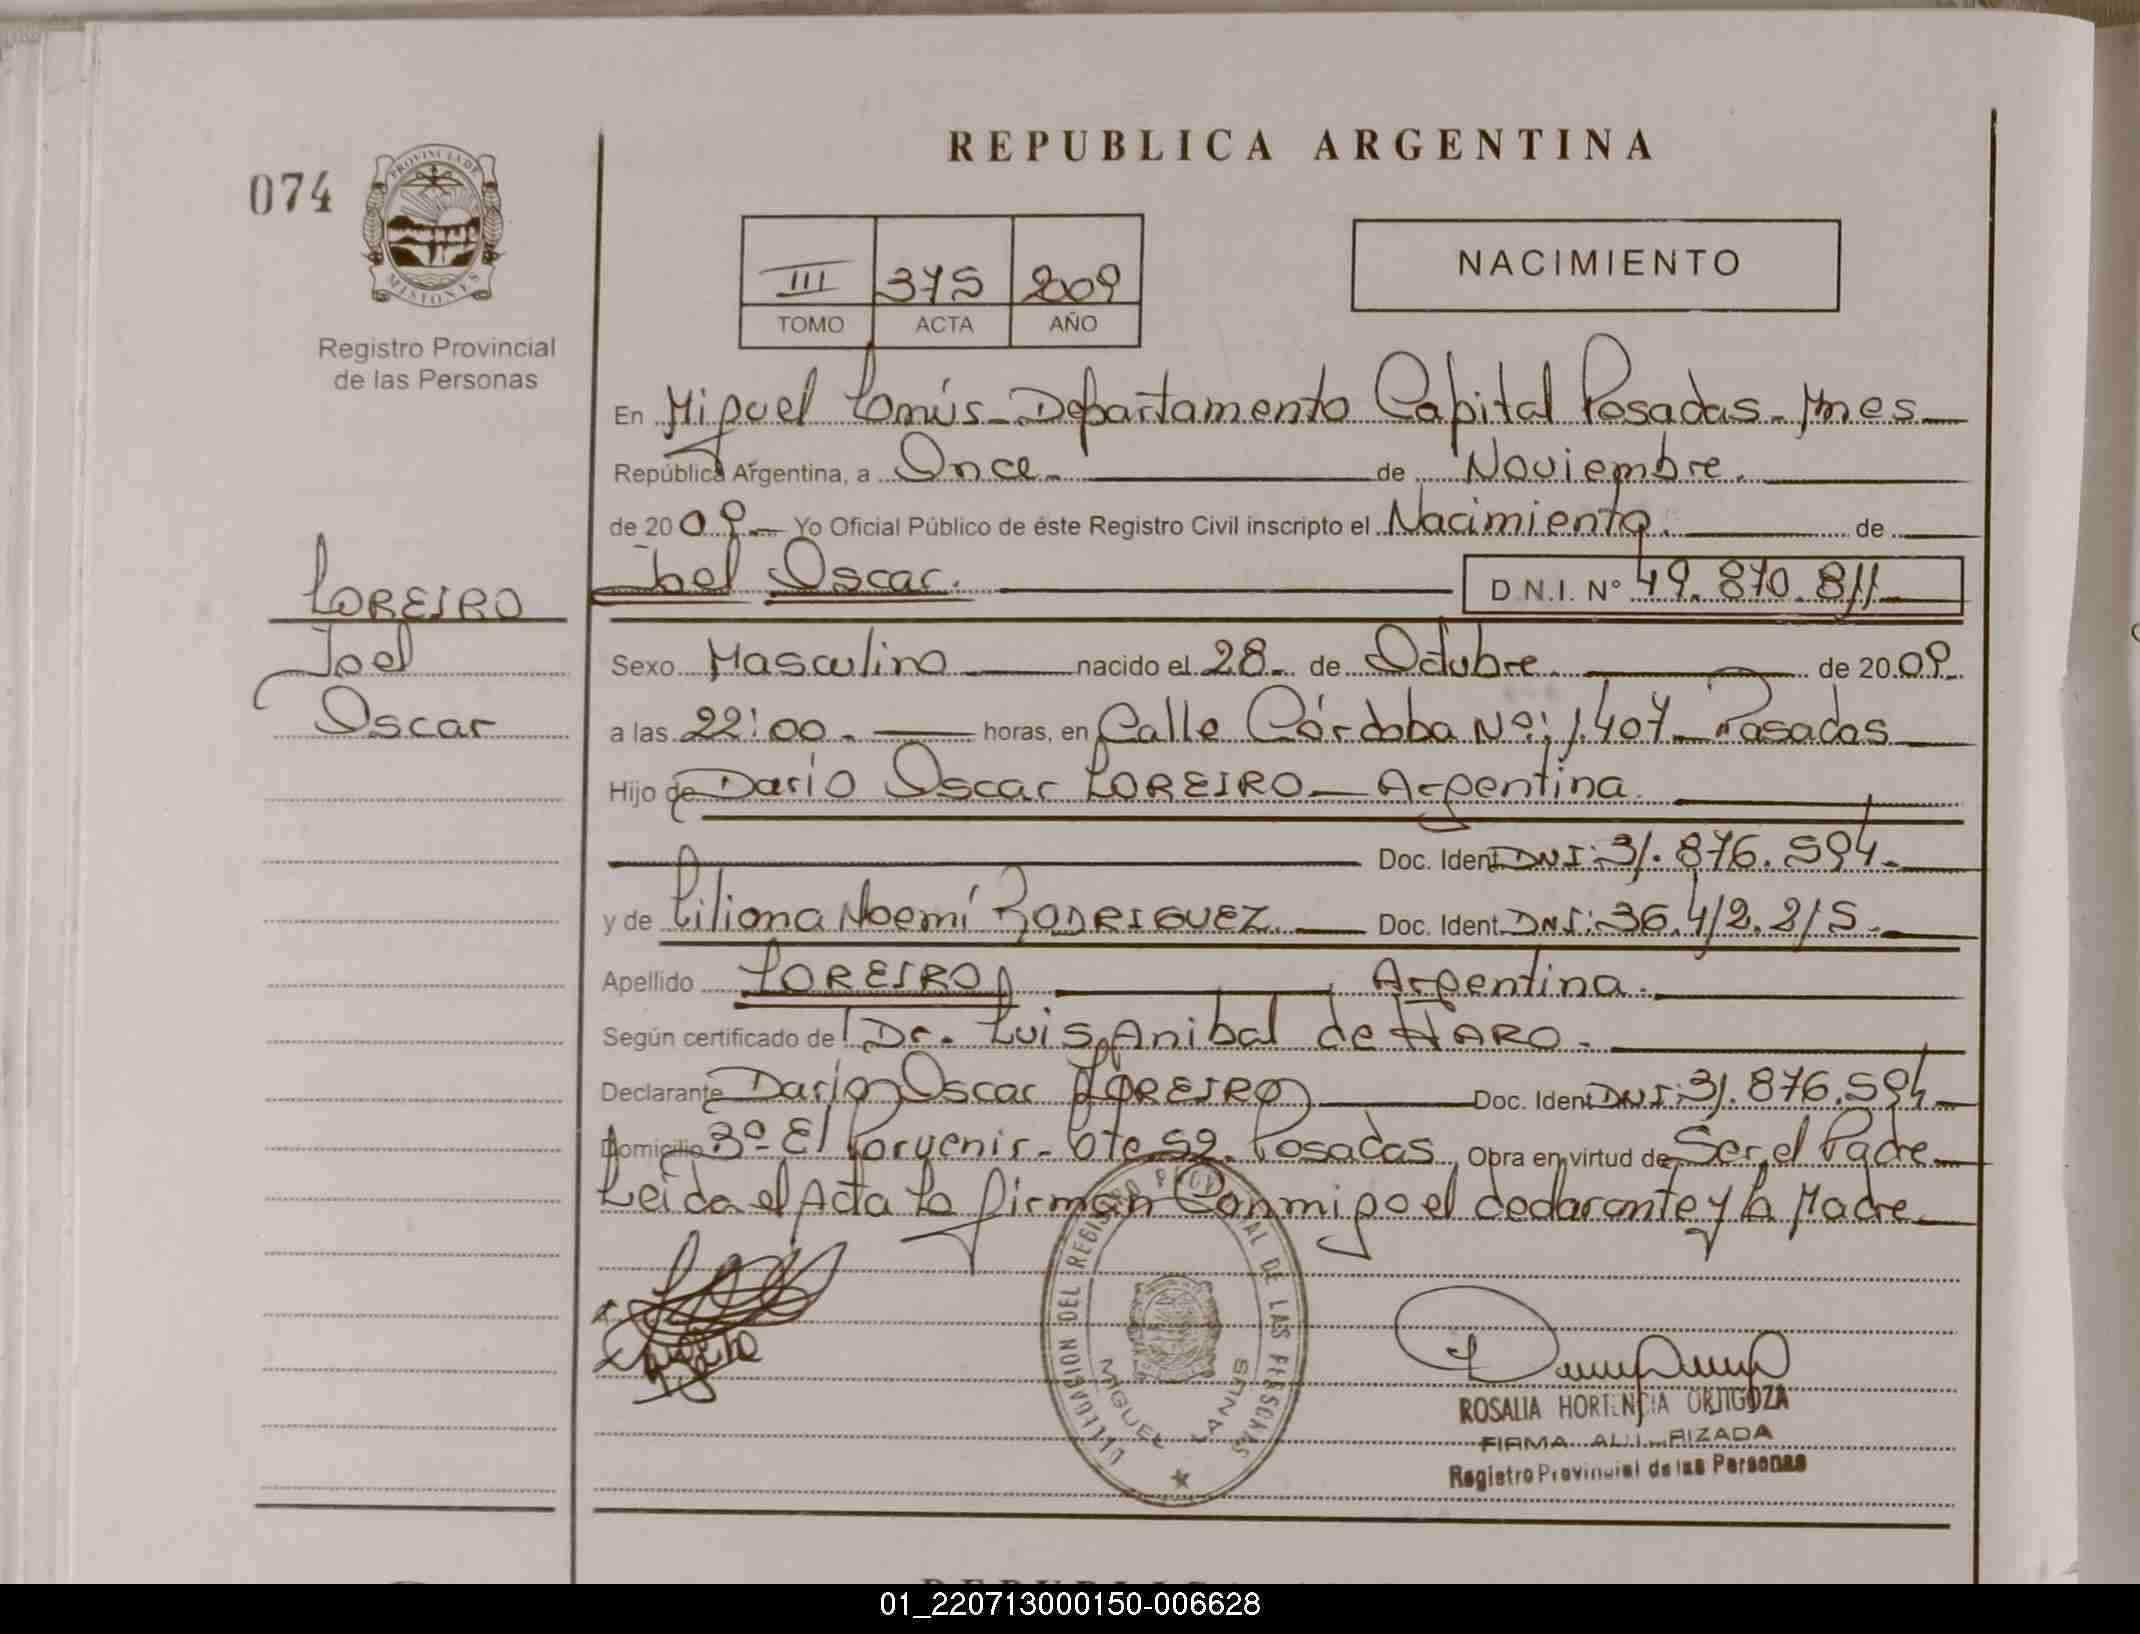 REPUBLICA ARGENTINA
074
PROVINCIA DE
MISIONES
Registro Provincial
de las Personas
III 375 2009
TOMO ACTA AÑO
NACIMIENTO
En Miguel Lanús - Departamento Capital Posadas - Mnes
República Argentina, a Once. de Noviembre.
de 2009 Yo Oficial Público de éste Registro Civil inscripto el Nacimiento. de
Joel Oscar. D.N.I. Nº 49.870.811
LOREIRO
Joel
Oscar
Sexo Masculino nacido el 28 de Octubre. de 2009
a las 22:00. horas, en Calle Córdoba Nº: 1.407 - Posadas
Hijo de Darío Oscar LOREIRO - Argentina.
Doc. Ident DNI: 31.876.594.
y de Liliana Noemí RODRIGUEZ. Doc. Ident. DNI: 36.412.215.
Apellido LOREIRO Argentina.
Según certificado de Dr. Luis Anibal de HARO.
Declarante Darío Oscar LOREIRO Doc. Ident DNI: 31.876.594
Domicilio Bº El Porvenir - Lote 52. Posadas Obra en virtud de Ser el Padre
Leida el Acta la firman Conmigo el declarante y la Madre
DELEGACION DEL REGISTRO PROVINCIAL DE LAS PERSONAS
MIGUEL LANUS
ROSALIA HORTENCIA ORTIGOZA
FIRMA AUTORIZADA
Registro Provincial de las Personas
01_220713000150-006628